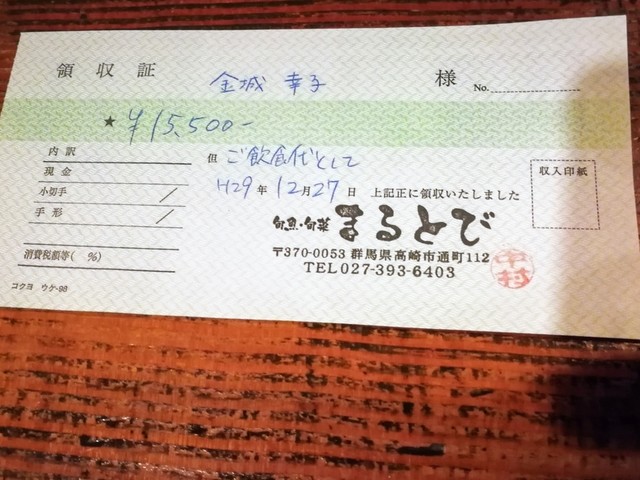 領収証 金城 幸子 様 No.
★ ¥15,500-
内訳 但 ご飲食代として
現金 H29年12月27日 上記正に領収いたしました
小切手 /
手形 /
消費税額等( %)
収入印紙
旬魚・旬菜 まるとび
〒370-0053 群馬県高崎市通町112
TEL 027-393-6403
中村
コクヨ ウケ-98